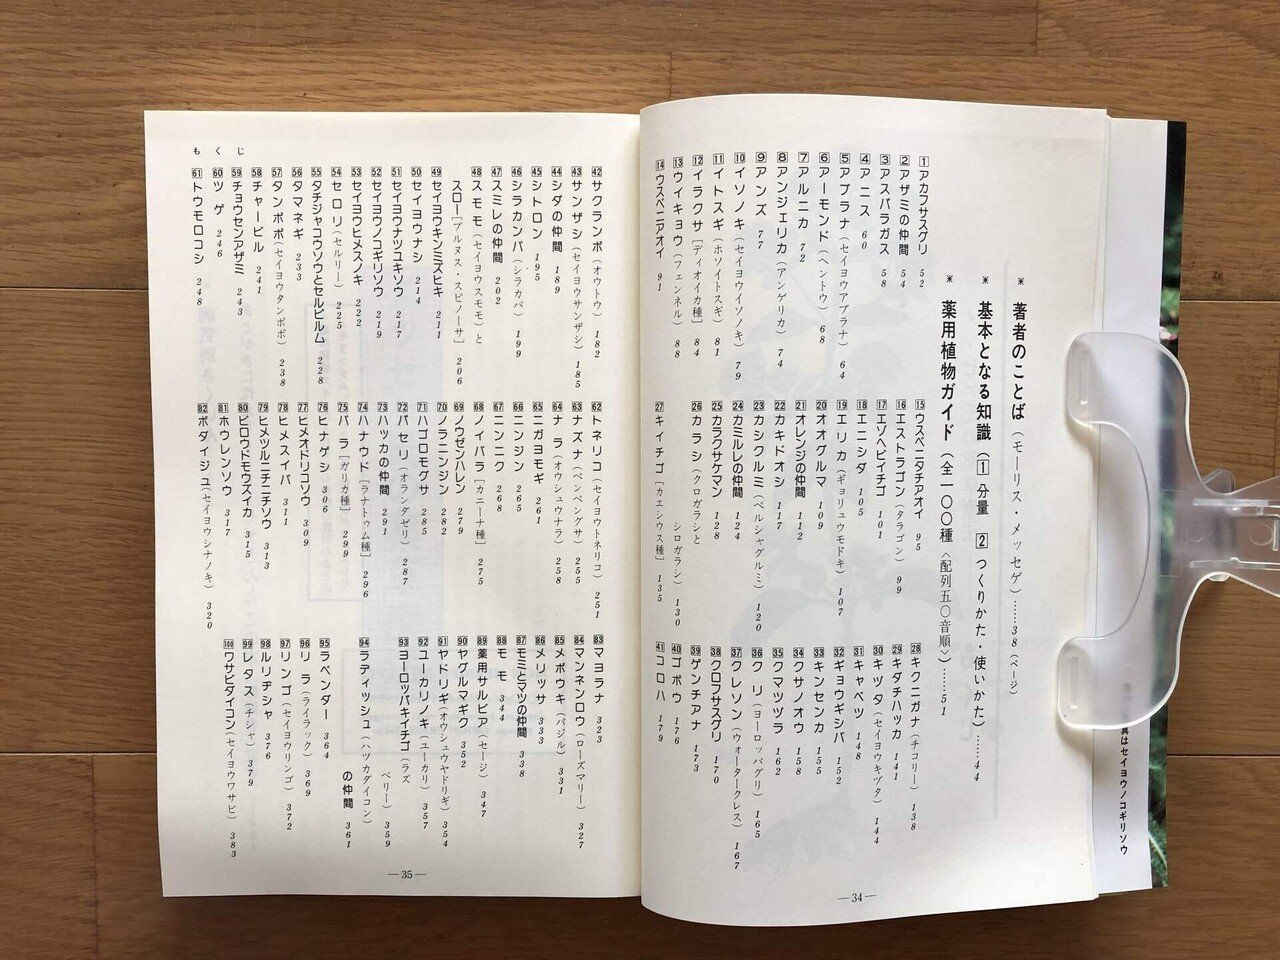 ＊ 著者のことば（モーリス・メッセゲ）……38（ページ）
＊ 基本となる知識（1 分量 2 つくりかた・使いかた）……44
＊ 薬用植物ガイド（全一〇〇種〈配列五〇音順〉）……51
1 アカフサスグリ 52
2 アザミの仲間 54
3 アスパラガス 58
4 アニス 60
5 アブラナ（セイヨウアブラナ）64
6 アーモンド（ヘントウ）68
7 アルニカ 72
8 アンジェリカ（アンゲリカ）74
9 アンズ 77
10 イソノキ（セイヨウイソノキ）79
11 イトスギ（ホソイトスギ）81
12 イラクサ［ディオイカ種］84
13 ウイキョウ（フェンネル）88
14 ウスベニアオイ 91
15 ウスベニタチアオイ 95
16 エストラゴン（タラゴン）99
17 エゾヘビイチゴ 101
18 エニシダ 105
19 エリカ（ギョリュウモドキ）107
20 オオグルマ 109
21 オレンジの仲間 112
22 カキドオシ 117
23 カシグルミ（ペルシャグルミ）120
24 カミルレの仲間 124
25 カラクサケマン 128
26 カラシ（クロガラシと
シロガラシ）130
27 キイチゴ［カエシウス種］135
28 キクニガナ（チコリー）138
29 キダチハッカ 141
30 キヅタ（セイヨウキヅタ）144
31 キャベツ 148
32 ギョウギシバ 152
33 キンセンカ 155
34 クサノオウ 158
35 クマツヅラ 162
36 クリ（ヨーロッパグリ）165
37 クレソン（ウォータークレス）167
38 クロフサスグリ 170
39 ゲンチアナ 173
40 ゴボウ 176
41 コロハ 179
—34—
もくじ
42 サクランボ（オウトウ）182
43 サンザシ（セイヨウサンザシ）185
44 シダの仲間 189
45 シトロン 195
46 シラカンバ（シラカバ）199
47 スミレの仲間 202
48 スモモ（セイヨウスモモ）と
スロー［プルヌス・スピノーサ］206
49 セイヨウキンミズヒキ 211
50 セイヨウナシ 214
51 セイヨウナツユキソウ 217
52 セイヨウノコギリソウ 219
53 セイヨウヒメスノキ 222
54 セロリ（セルリー）225
55 タチジャコウソウとセルピルム 228
56 タマネギ 233
57 タンポポ（セイヨウタンポポ）238
58 チャービル 241
59 チョウセンアザミ 243
60 ツゲ 246
61 トウモロコシ 248
62 トネリコ（セイヨウトネリコ）251
63 ナズナ（ペンペングサ）255
64 ナラ（オウシュウナラ）258
65 ニガヨモギ 261
66 ニンジン 265
67 ニンニク 268
68 ノイバラ［カニーナ種］275
69 ノウゼンハレン 279
70 ノラニンジン 282
71 ハゴロモグサ 285
72 パセリ（オランダゼリ）287
73 ハッカの仲間 291
74 ハナウド［ラナトゥム種］296
75 バラ［ガリカ種］299
76 ヒナゲシ 306
77 ヒメオドリコソウ 309
78 ヒメスイバ 311
79 ヒメツルニチニチソウ 313
80 ビロウドモウズイカ 315
81 ホウレンソウ 317
82 ボダイジュ（セイヨウシナノキ）320
83 マヨラナ 323
84 マンネンロウ（ローズマリー）327
85 メボウキ（バジル）331
86 メリッサ 333
87 モミとマツの仲間 338
88 モモ 344
89 薬用サルビア（セージ）347
90 ヤグルマギク 352
91 ヤドリギ（オウシュウヤドリギ）354
92 ユーカリノキ（ユーカリ）357
93 ヨーロッパキイチゴ（ラズ
ベリー）359
94 ラディッシュ（ハツカダイコン）
の仲間 361
95 ラベンダー 364
96 リラ（ライラック）369
97 リンゴ（セイヨウリンゴ）372
98 ルリヂシャ 376
99 レタス（チシャ）379
100 ワサビダイコン（セイヨウワサビ）383
—35—
真はセイヨウノコギリソウ